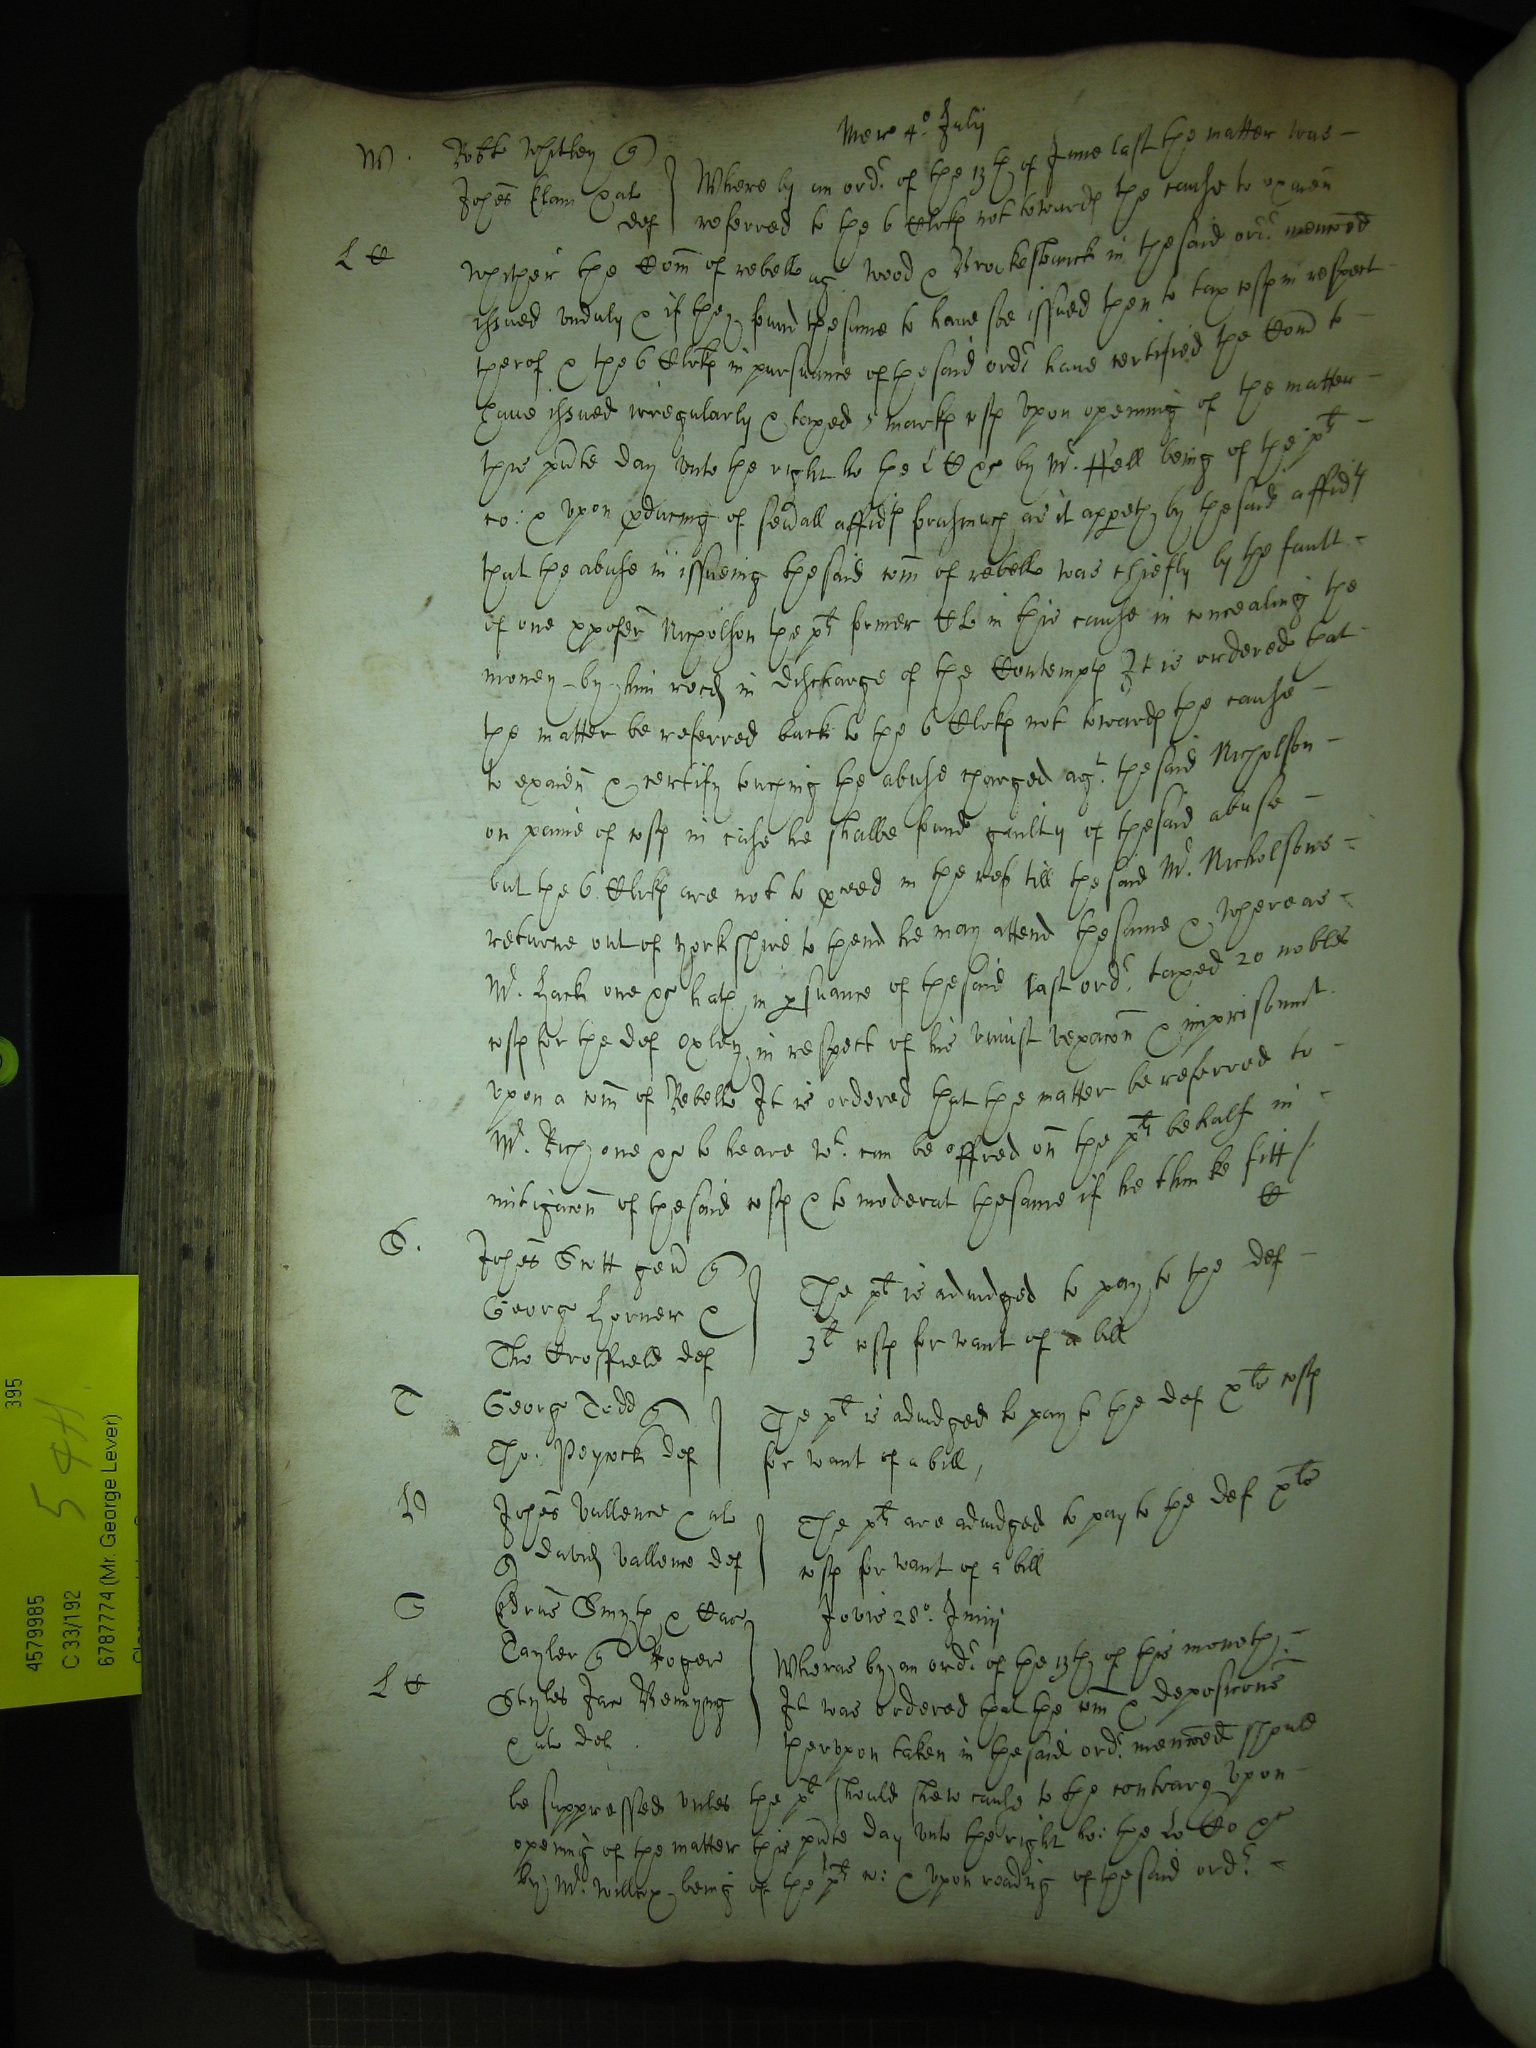 Mer 4o. Julij
W. Robte Whitley q
Johes Elam & al
def
Where by an ordr. of the 13th of June last the matter was
referred to the 6 Clrks not towards the cause to examen
L C whither the Com of rebell agt Wood & in the said ordr. menconed
issued unduly & if they found the same to have soe issued then to tax costs in respect
therof & the 6 Clrks in pursuance of the said ordr have certified the Com to
have issued irregularly & taxed 5 marks costs Upon opening of the matter
this pnte day unto the right ho the L C &c by Mr. Hell being of the plts
co: & upon producing of sevall affidts forasmuch as it appeth by the said affidts
that the abuse in issueing the said com of rebell was chiefly by the fault
of one Nicholson the plts former Cl in this cause in concealing the
money by him recd in discharge of the Contempts It is ordered that
the matter be referred back to the 6 Clrks not towards the cause
to examen & certify touching the abuse charged agt. the said Nicholson
on paine of costs in case he shalbe found guilty of the said abuse
but the 6 Clrks are not to pceed in the ref till the said Mr. Nicholsons
returne out of yorkshire to thend he may attend the same & whereas
Mr. Hach one &c hath in psuance of the said last ordr. taxed 20 nobles
costs for the def Oxley in respect of his uniust vexacon & imprisonmt
upon a com of Rebell It is ordered that the matter be referred to
Mr. Rich one &c to heare wt. can be offred on the plts behalf in
mitigacon of the said costs & to moderat the same if he thinke fitt /
C
S. Johes Scott gen q
George Horner &
Tho Crosfield def
The plt is adiudged to pay to the def
3l costs for want of a bill
T George Todd q
Tho: Peycock def
The plt is adiudged to pay to the def xls costs
for want of a bill,
Johes Vallence & al
q David Vallence def
The plts are adiudged to pay to the def xls
costs for want of a bill
S Smyth &
Tayler q Roger
L C Styles Jac
& al def.
Jovis 28o. Junij
Wheras by an ordr. of the 13th of this moneth
It was ordered that the com & deposicons
therupon taken in the said ordr. menconed should
be suppressed unles the plt should shew cause to the contrary Upon
opening of the matter this pnte day unto the right ho: the Lo Co &c
by Mr. being of the plts co: & upon reading of the said ordr.
395
5 441
4579985
C 33/192
6787774 (Mr. George Lever)